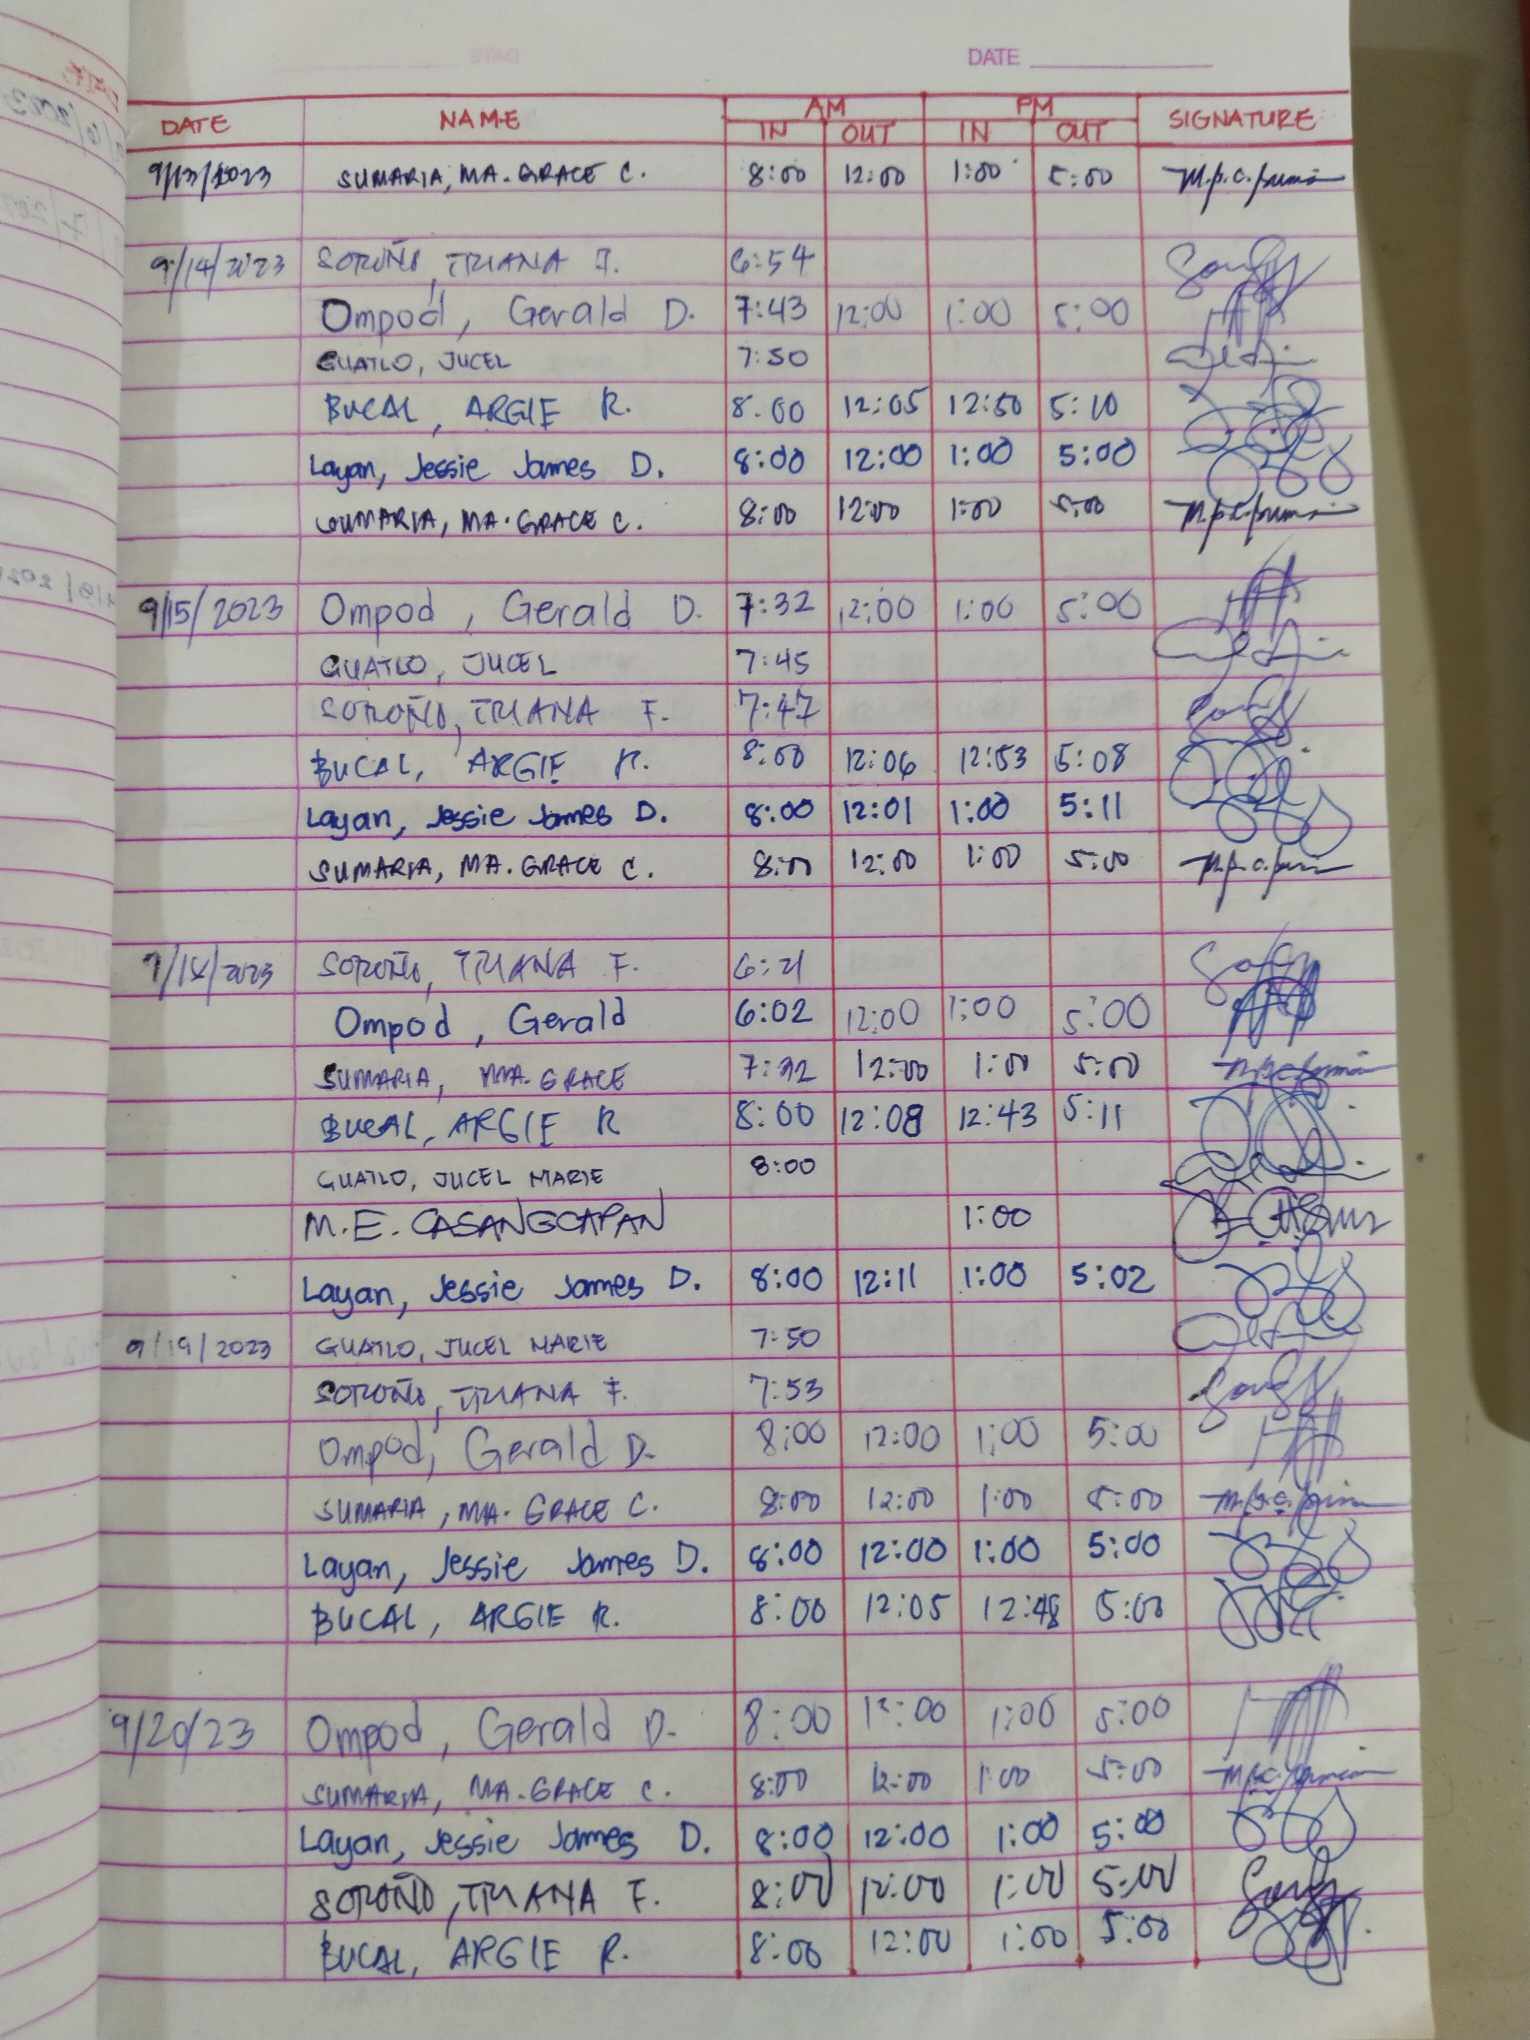 DATE
DATE NAME AM PM SIGNATURE
IN OUT IN OUT
9/13/2023 SUMARIA, MA. GRACE C. 8:00 12:00 1:00 5:00
9/14/2023 SOROÑO, TRIANA F. 6:54
Ompod, Gerald D. 7:43 12:00 1:00 5:00
GUATLO, JUCEL 7:50
BUCAL, ARGIE R. 8:00 12:05 12:50 5:10
Layan, Jessie James D. 8:00 12:00 1:00 5:00
SUMARIA, MA. GRACE C. 8:00 12:00 1:00 5:00
9/15/2023 Ompod, Gerald D. 7:32 12:00 1:00 5:00
GUATLO, JUCEL 7:45
SOROÑO, TRIANA F. 7:47
BUCAL, ARGIE R. 8:00 12:06 12:53 5:08
Layan, Jessie James D. 8:00 12:01 1:00 5:11
SUMARIA, MA. GRACE C. 8:00 12:00 1:00 5:00
SOROÑO, TRIANA F. 6:21
Ompod, Gerald 6:02 12:00 1:00 5:00
SUMARIA, MA. GRACE 7:32 12:00 1:00 5:00
BUCAL, ARGIE R 8:00 12:08 12:43 5:11
GUATLO, JUCEL MARIE 8:00
M.E. CASANGCAPAN 1:00
Layan, Jessie James D. 8:00 12:11 1:00 5:02
9/19/2023 GUATLO, JUCEL MARIE 7:50
SOROÑO, TRIANA F. 7:53
Ompod, Gerald D. 8:00 12:00 1:00 5:00
SUMARIA, MA. GRACE C. 8:00 12:00 1:00 5:00
Layan, Jessie James D. 8:00 12:00 1:00 5:00
BUCAL, ARGIE R. 8:00 12:05 12:48 5:00
9/20/23 Ompod, Gerald D. 8:00 12:00 1:00 5:00
SUMARIA, MA. GRACE C. 8:00 12:00 1:00 5:00
Layan, Jessie James D. 8:00 12:00 1:00 5:00
SOROÑO, TRIANA F. 8:00 12:00 1:00 5:00
BUCAL, ARGIE R. 8:00 12:00 1:00 5:00